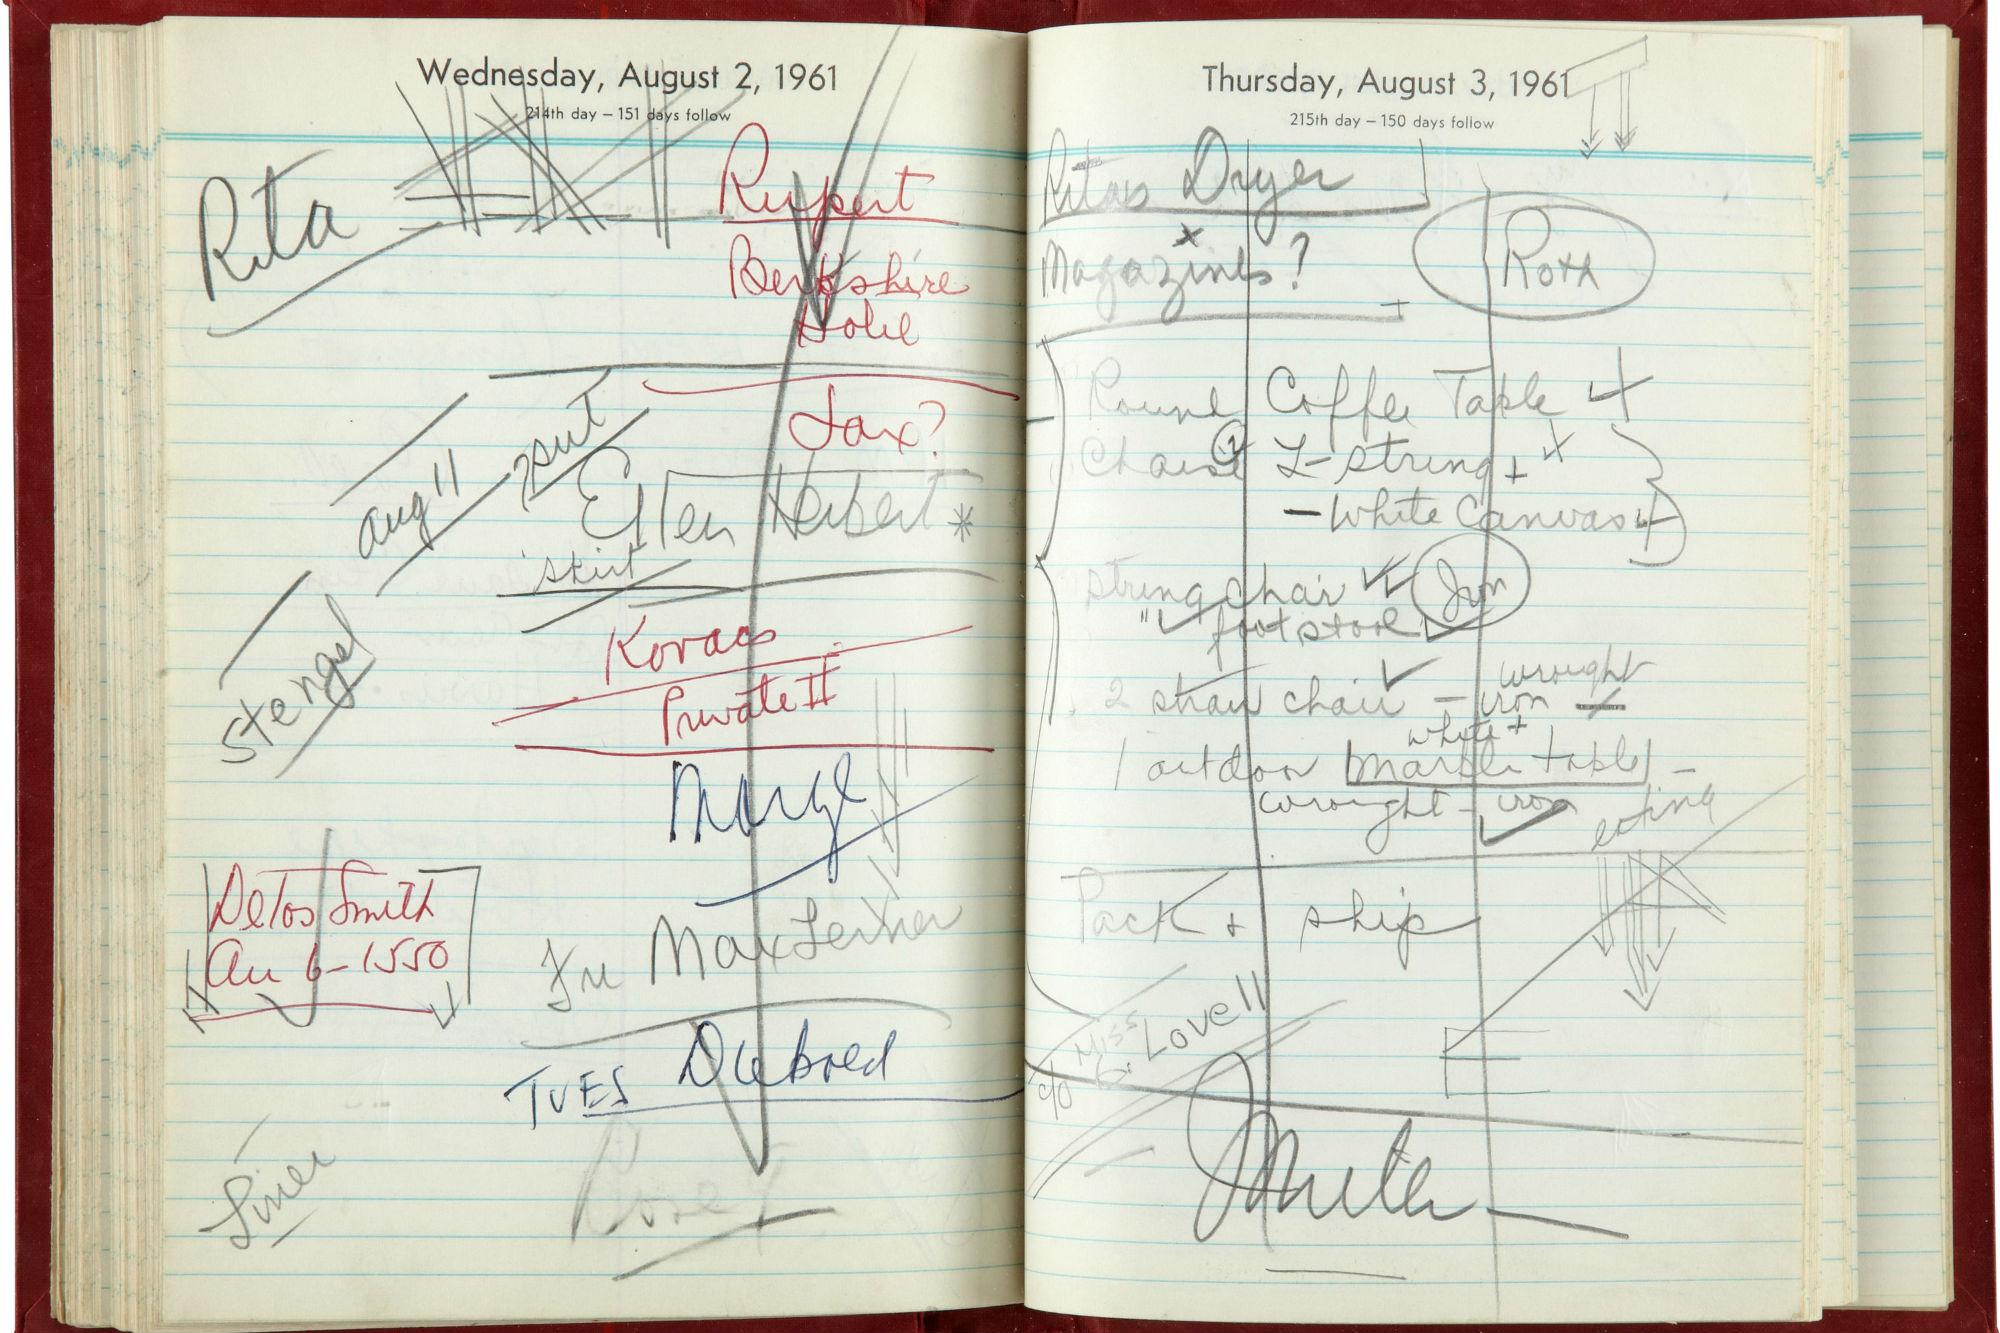 Wednesday, August 2, 1961
214th day – 151 days follow
Rita
Rupert
Berkshire
Hotel
Tax?
Aug 11
Ellen Herbert *
skirt
Stengel
Kovacs
Private II
Marge
Delos Smith
Au 6-1550
Max Lerner
TUES Diebold
Liner
Thursday, August 3, 1961
215th day – 150 days follow
Ritas Dryer
Magazines?
Roth
Round Coffee Table
Chaise 2 L-string +
- White Canvas
string chair
Iron
" footstool
2 straw chair - wrought
iron
white +
1 outdoor marble table -
wrought-iron eating
Pack + ship
c/o Miss G. Lovell